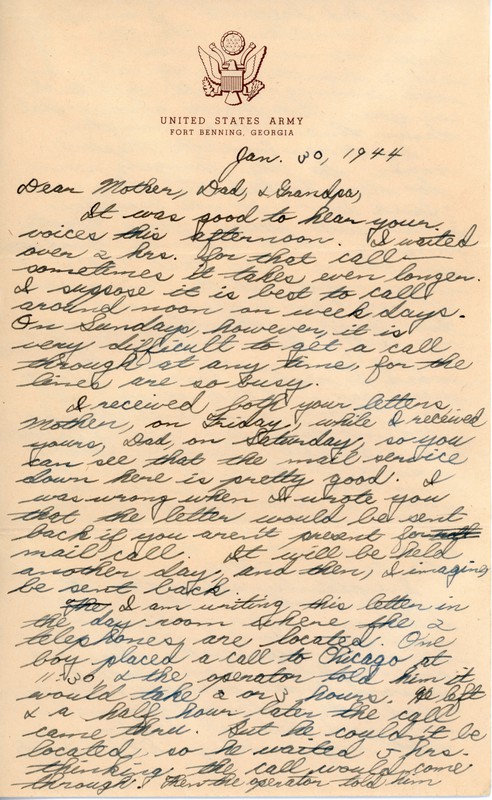 UNITED STATES ARMY
FORT BENNING, GEORGIA
Jan. 30, 1944
Dear Mother, Dad, & Grandpa,
It was good to hear your
voices this afternoon. I waited
over 2 hrs. for that call—
sometimes it takes even longer.
I suppose it is best to call
around noon on week days.
On Sundays, however, it is
very difficult to get a call
through at any time, for the
lines are so busy.
I received both your letters,
Mother, on Friday, while I received
yours, Dad, on Saturday, so you
can see that the mail service
down here is pretty good. I
was wrong when I wrote you
that the letter would be sent
back if you aren't present for
mail call. It will be held
another day, and then, I imagine,
be sent back.
I am writing this letter in
the day room where the 2
telephones are located. One
boy placed a call to Chicago at
11:30, & the operator told him it
would take 2 or 3 hours. He left
& a half hour later the call
came thru. But he couldn't be
located, so he waited 5 hrs.
thinking the call would come
through. Then the operator told him